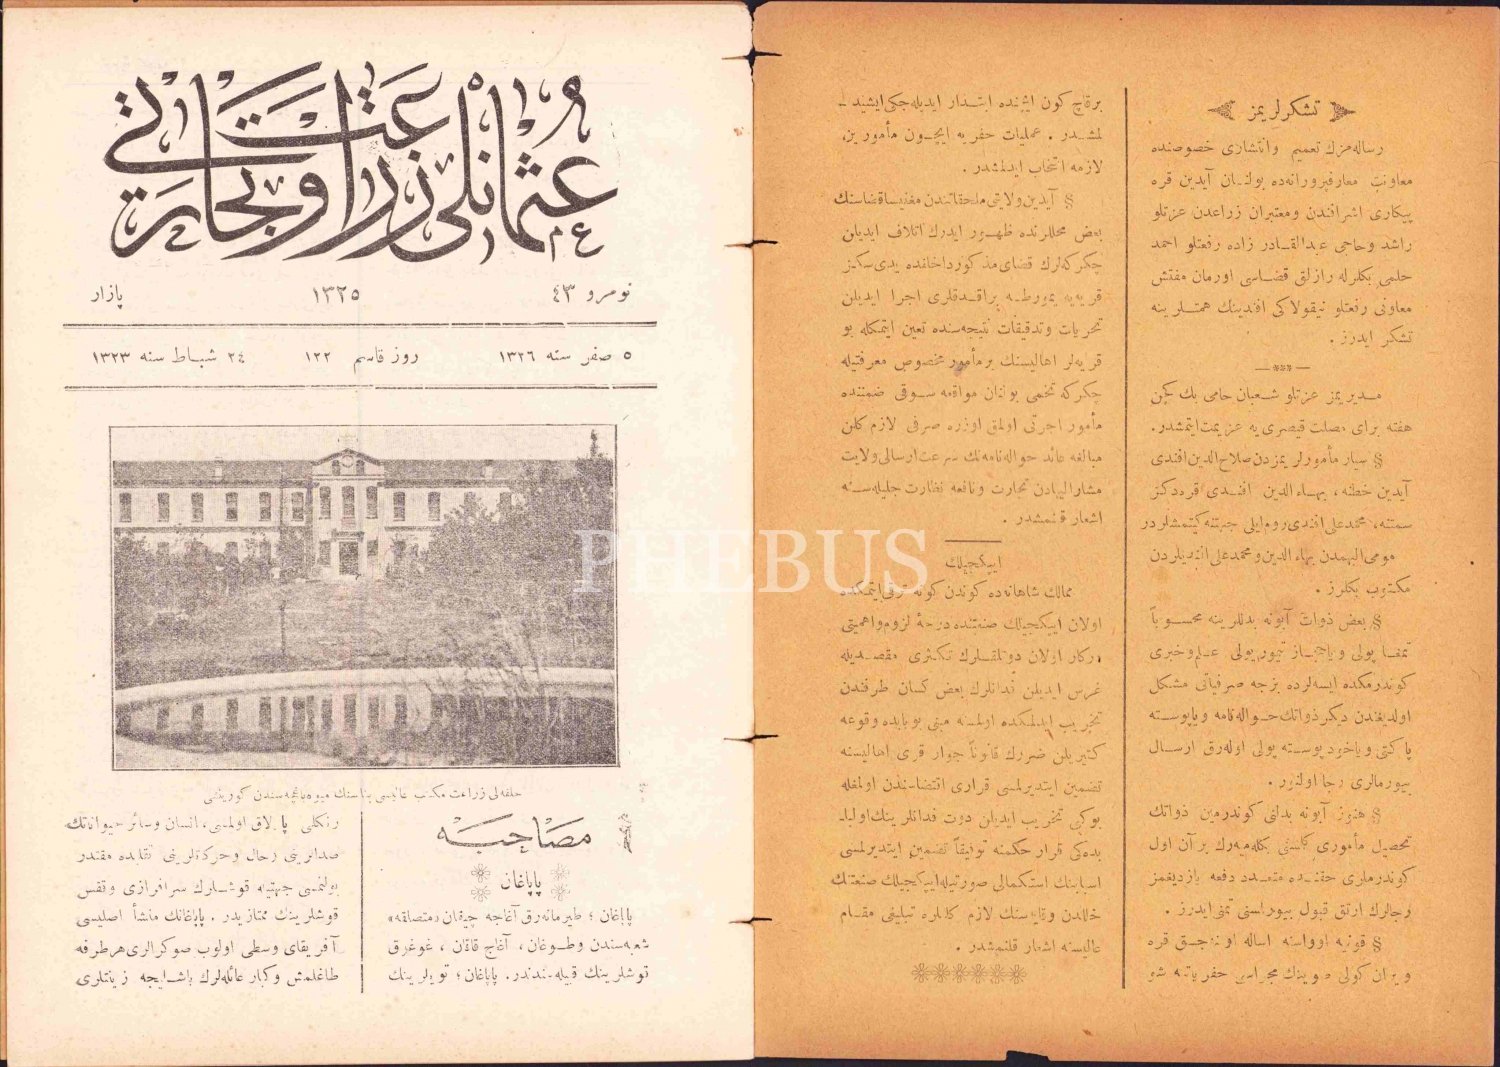 عثمانلی زراعت
و تجارتی
نومرو ٤٣
١٣٢٥
پازار
٥ صفر سنه ١٣٢٦
روز قاسم ١٢٢
٢٤ شباط سنه ١٣٢٣
حلقه‌لی زراعت مكتب عالیسی بناسنك میوه باغچه‌سندن كورینشی
مصاحبه
پاپاغان
پاپاغان ؛ طیرمانه‌رق آغاجه چیقان «متصلقه»
شعبه‌سندن وطوغان ، آغاج قاقان ، غوغوق
قوشلرینك قبیله‌سندندر. پاپاغان ؛ تویلرینك
رنكلی پارلاق اولمسی ، انسان وسائر حیواناتك
صدالرینی وحال وحركه‌لرینی تقلیده مقتدر
بولنمسی جهتیله قوشلرك سرافرازی وقفس
قوشلرینك ممتازیدر . پاپاغانك منشأ اصلیسی
آفریقای وسطی اولوب صوكرالری هر طرفه
طاغلمش وكبار عائله‌لرك باشلیجه زینتلری
تشكرلریمز
رساله‌مزك تعمیم وانتشاری خصوصنده
معاونت معارفپرورانه‌ده بولنان آیدین قره
پیكاری اشرافندن ومعتبران زراعدن عزتلو
راشد وحاجی عبدالقادر زاده رفعتلو احمد
حلمی بكلرله رازلق قضاسی اورمان مفتش
معاونی رفعتلو نیقولاكی افندینك همتلرینه
تشكر ایدرز .
مدیریمز عزتلو شعبان حامی بك كچن
هفته برای مصلحت قیصری‌یه عزیمت ایتمشدر.
§ سیار مأمورلریمزدن صلاح الدین افندی
آیدین خطنه ، بهاء الدین افندی قره‌دكز
سمتنه، محمد علی افندی روم‌ایلی جهتنه كیتمشلردر
مومی الیهمدن بهاء الدین ومحمد علی افندیلردن
مكتوب بكلرز .
§ بعض ذوات آبونه بدللرینه محسوباً
تمغا پولی ویا حجاز تیمور یولی علم وخبری
كوندرمكده ایسه‌لرده بزجه صرفیاتی مشكل
اولدیغندن دیكر ذواتك حواله‌نامه ویا پوسته
پاكتی ویاخود پوسته پولی اوله‌رق ارسال
بیورمالری رجا اولنور .
§ هنوز آبونه بدلنی كوندرمین ذواتك
تحصیل مأموری كلمسنی بكله‌میه‌رك بر آن اول
كوندرملری حقنده متعدد دفعه یازدیغمز
رجالرك ارتق قبول بیورلمسنی تمنی ایدرز .
§ قونیه اوواسنه اساله اولنه‌جق قره
ویران كولی صوینك مجراسی حفریاتنه شو
برقاچ كون ایچنده ابتدار ایدیله‌جكی ایشیدلـ
لمشدر . عملیات حفریه ایچون مأمورین
لازمه انتخاب ایدلمشدر .
§ آیدین ولایتی ملحقاتندن مغنیسا قضاسنك
بعض محللرنده ظهور ایدرك اتلاف ایدیلن
چكركه‌لرك قضای مذكور داخلنده یدی سكز
قریه‌یه یمورطه براقدقلری اجرا ایدیلن
تحریات وتدقیقات نتیجه‌سنده تعین ایتمكله بو
قریه‌لر اهالیسنك بر مأمور مخصوص معرفتیله
چكركه تخمی بولنان مواقعه سوقی ضمننده
مأمور اجرتی اولمق اوزره صرفی لازم كلن
مبالغه عائد حواله‌نامه‌نك سرعت ارسالی ولایت
مشار الیهادن تجارت ونافعه نظارت جلیله‌سنه
اشعار قلنمشدر .
ایپكجیلك
ممالك شاهانه‌ده كوندن كونه ترقی ایتمكده
اولان ایپكجیلك صنعتنده درجهٔ لزوم واهمیتی
دركار اولان دوتلقلرك تكثری مقصدیله
غرس ایدیلن فدانلرك بعض كسان طرفندن
تخریب ایدلمكده اولمسنه مبنی بو بابده وقوعه
كتیریلن ضررك قانوناً جوار قری اهالیسنه
تضمین ایتدیرلمسی قراری اقتضاسندن اولمغله
بوكبی تخریب ایدیلن دوت فدانلرینك اولبا‌ـ
بده‌كی قرار حكمنه توفیقاً تضمین ایتدیرلمسی
اسبابنك استكمالی صورتیله ایپكجیلك صنعتنك
خللدن وقایه‌سنك لازم كلنلره تبلیغی مقام
عالیسنه اشعار قلنمشدر .
PHEBUS